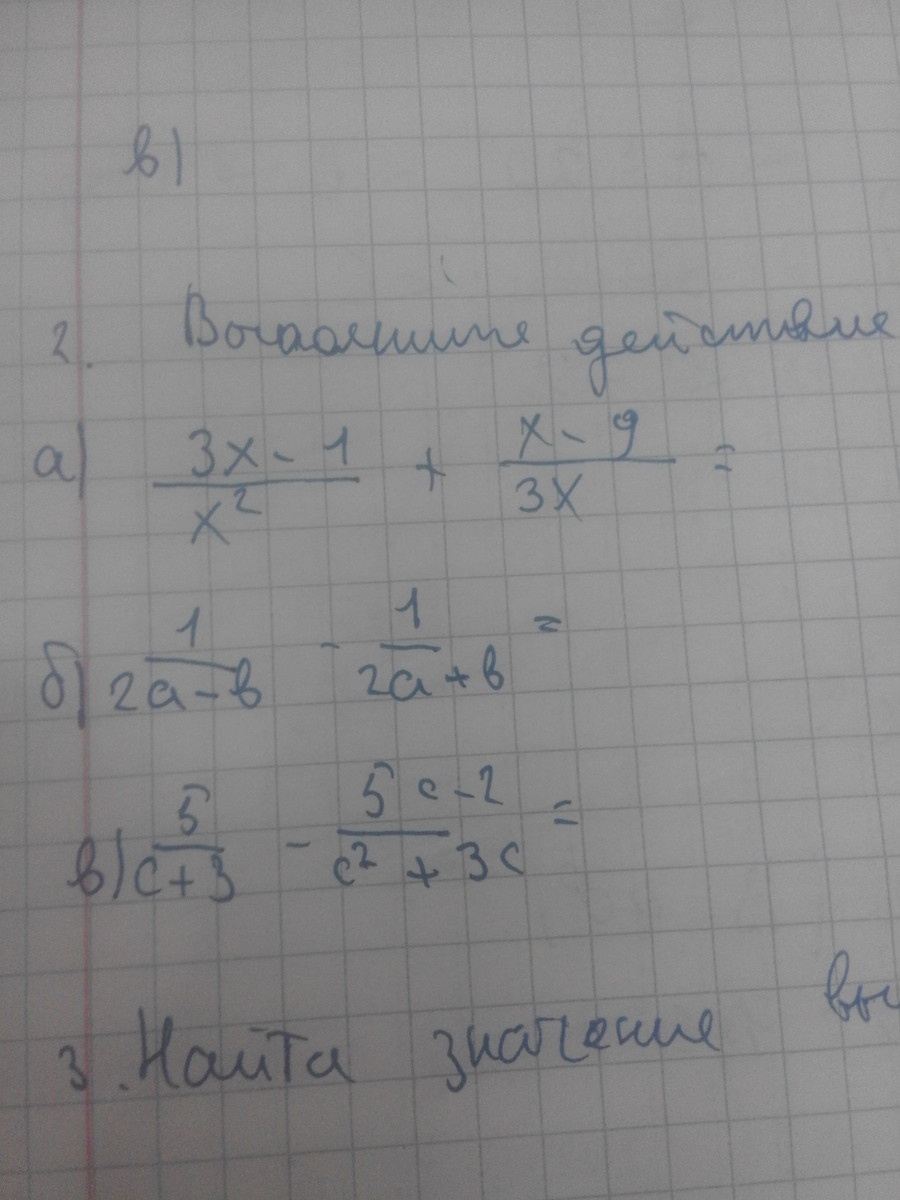 в)
2. Выполните действие
а) (3x - 1)/x² + (x - 9)/3x =
б) 1/(2a - b) - 1/(2a + b) =
в) 5/(c + 3) - (5c - 2)/(c² + 3c) =
3. Найти значение вы